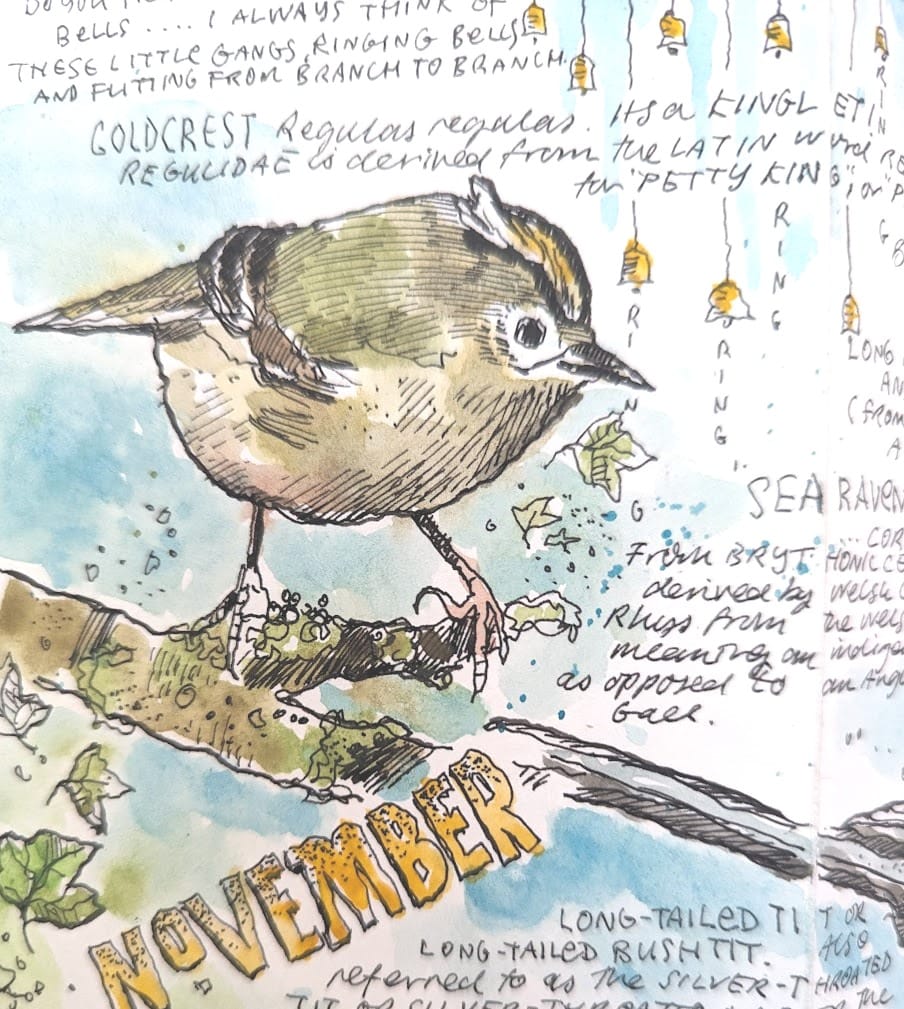 BELLS .... I ALWAYS THINK OF
THESE LITTLE GANGS, RINGING BELLS
AND FLITTING FROM BRANCH TO BRANCH.
GOLDCREST Regulas regulas. Its a KINGLET
REGULIDAE is derived from the LATIN word
for "PETTY KING" or
RING
RING
RING
RIN
LONG
(FROM
SEA RAVEN
... COR
From BRYT
derived by Welsh
Rhys from the Wels
meaning an indige
as opposed to an Ang
Gael.
NOVEMBER
LONG-TAILED TIT OR
LONG-TAILED BUSHTIT. ALSO
referred to as THE SILVER-THROATED
TIT OR SILVER-THROATED